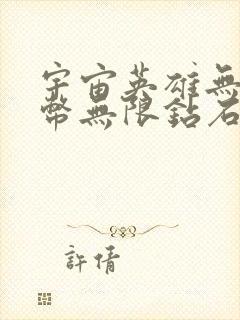 宇宙英雄無
幣無限鈷石
許倩